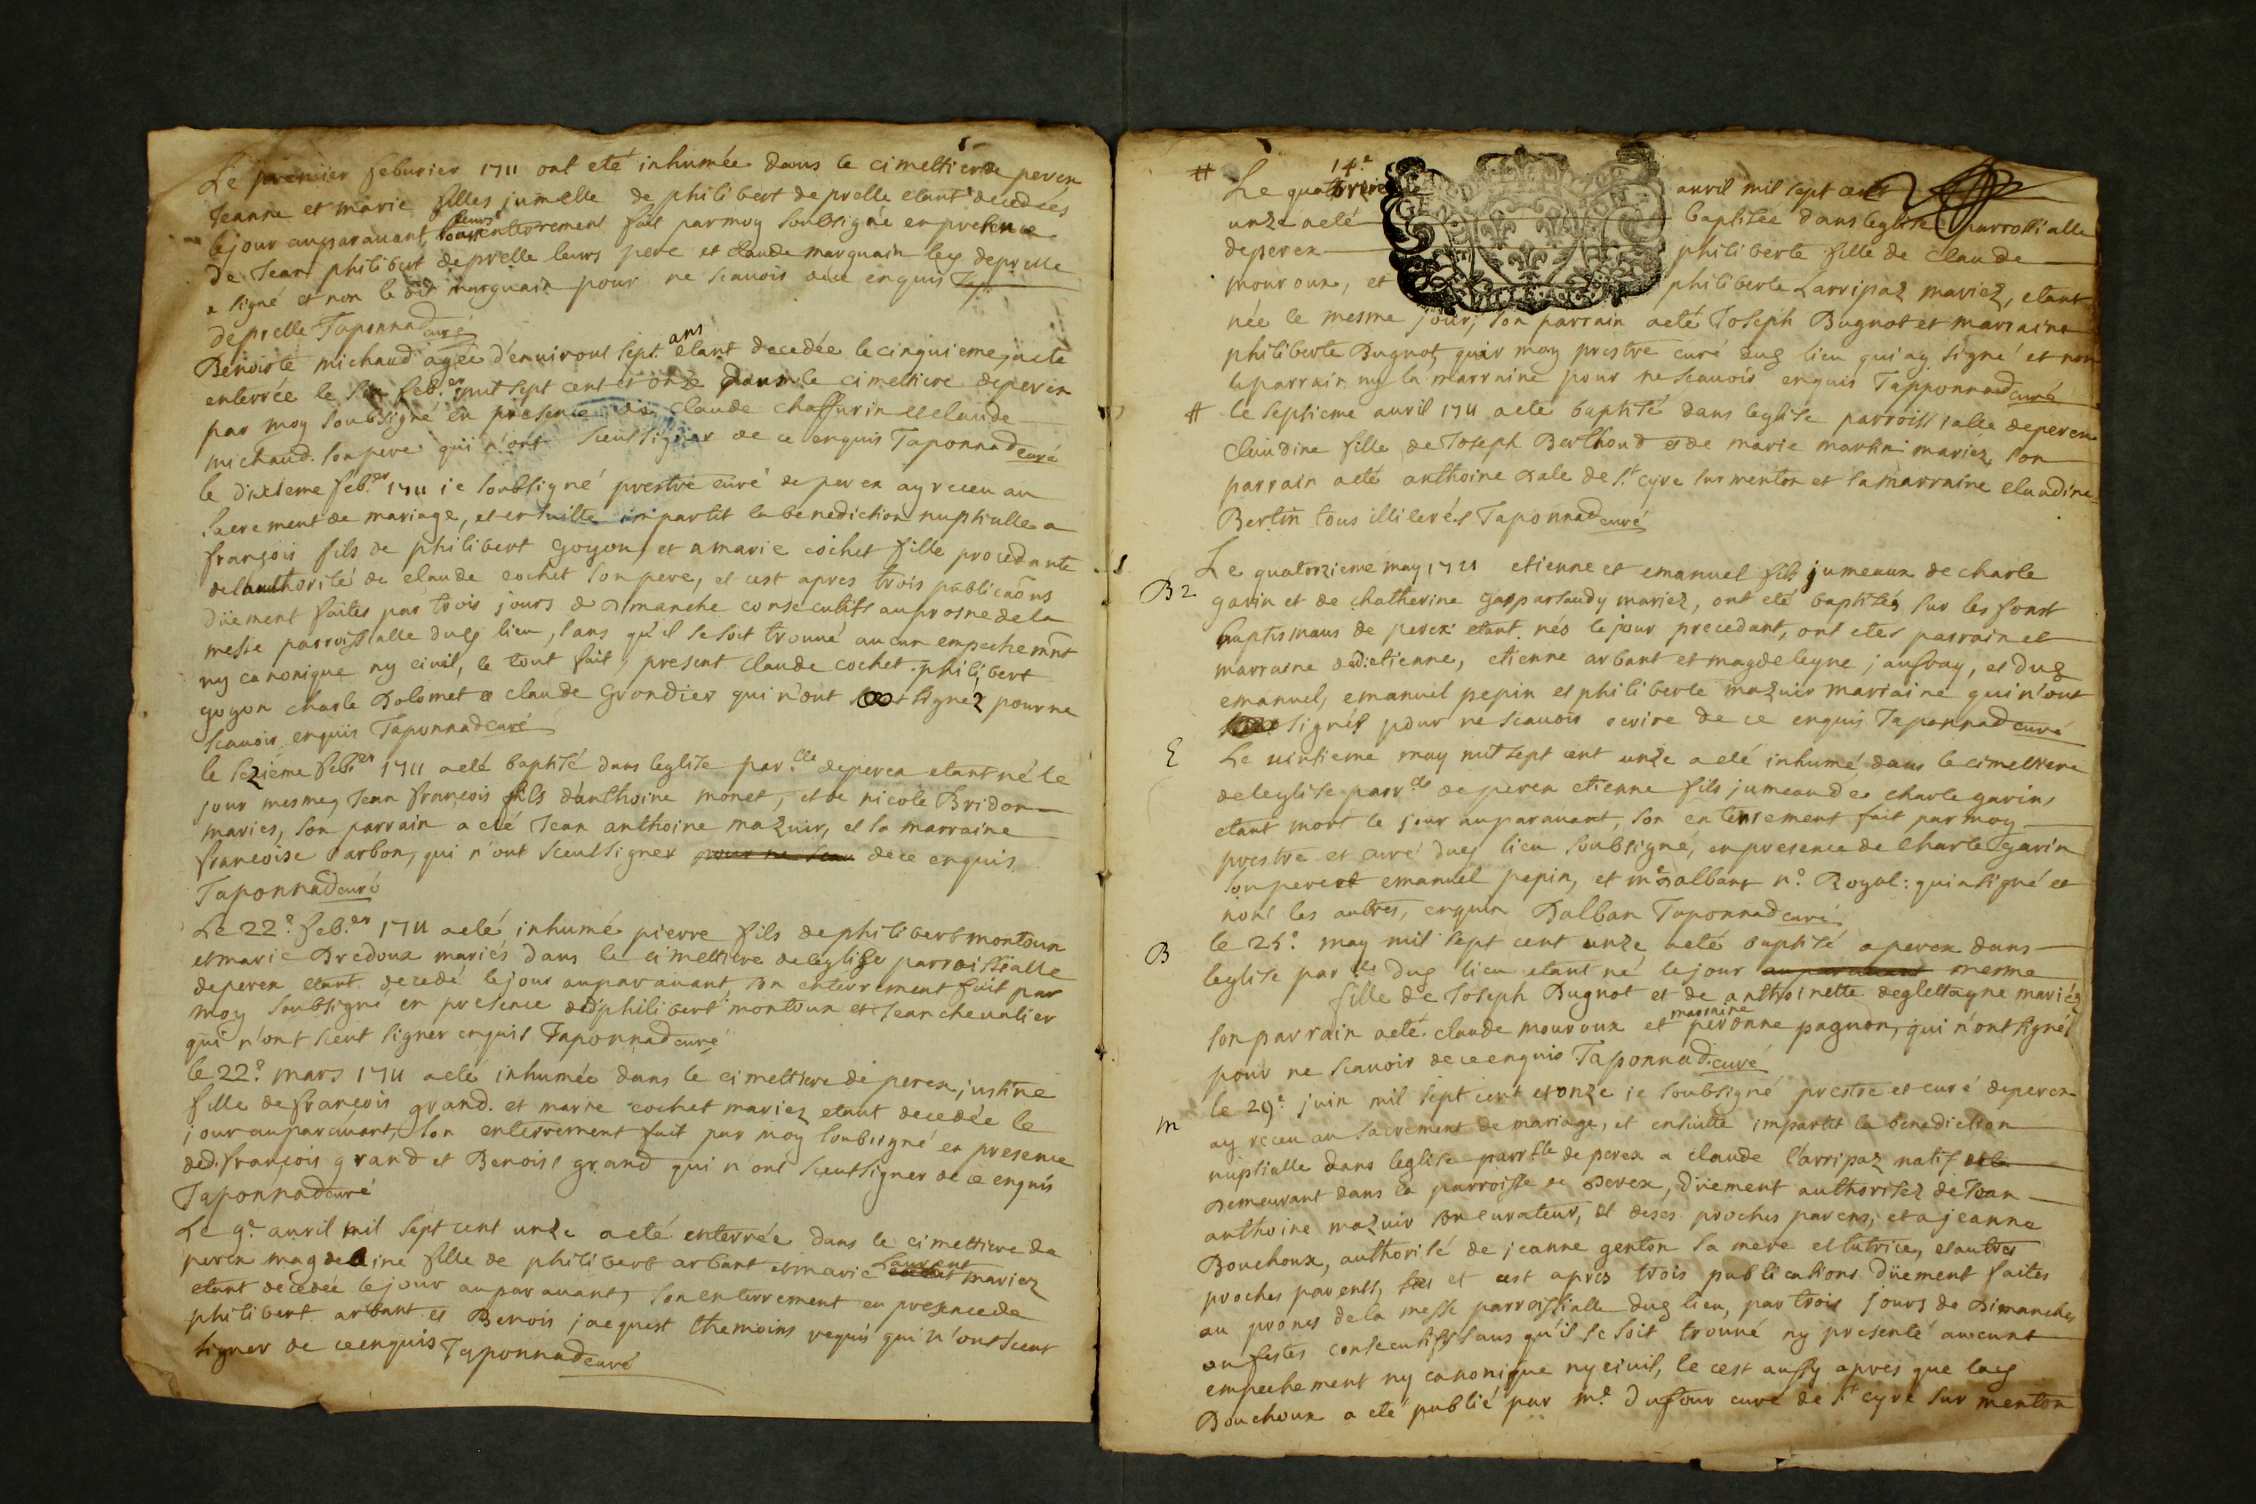 Le premier feburier 1711 ont eté inhumée dans le cimettier de perex
Jeanne et marie filles jumelle de philibert de prelle etant decedées
le jour auparavant, leurs enterrement fait par moy soubsigné en presence
de Jean philibert deprelle leurs pere et claude marguain led deprelle
a signé et non le dit marguain pour ne scavoir ecri enquis
deprelle Taponnad curé
Benoiste michaud agée d'environt sept ans etant decedée le cinquieme, acte
enterrée le feb.er mil sept cent et onze dans le cimettiere de perex
par moy soubsigné en presence de claude chaffurin et claude
michaud. son pere qui n'ont sceut signer de ce enquis Taponnad curé
le dixieme feb.er 1711 ie soubsigné prestre curé de perex ay receu au
sacrement de mariage, et ensuitte impartit la benediction nuptialle a
françois fils de philibert goyon, et a marie cochet fille procedante
de l'authorité de claude cochet son pere, et cest apres trois publicaõns
düement faites par trois jours de dimanche consecutifs au prosne de la
messe parroissialle dud lieu, sans qu'il se soit trouué aucun empechemnt
ny canonique ny civil, le tout fait, present claude cochet. philibert
goyon charle Dolomet et claude Grondier qui n'ont signez pour ne
scavoir enquis Taponnad curé
le sezieme feb.er 1711 a eté baptisé dans leglise par.lle de perex etant né le
jour mesme, Jean françois fils d'anthoine monet, et de nicole Bridon
mariés, son parrain a eté Jean anthoine mazuir, et la marraine
francoise Carbon, qui n'ont sceut signer pour ne scau de ce enquis
Taponnad curé
Le 22.e feb.er 1711 a eté inhumé pierre fils de philibert montoux
et marie Bredoux mariés dans le cimettiere de leglise parroissialle
de perex etant decedé le jour auparavant, son enterrement fait par
moy soubsigné en presence dud philibert montoux et Jean chevalier
qui n'ont sceut signer enquis Taponnad curé
le 22.e mars 1711 a eté inhumée dans le cimettiere de perex, iustine
fille de françois grand. et marie cochet mariez etant decedée le
jour auparavant, son enterrement fait par moy soubsigné en presence
dud. françois grand et Benoist grand qui n'ont sceut signer de ce enquis
Taponnad curé
Le 9.e avril mil sept cent unze a eté enterrée dans le cimettiere de
perex magdeleine fille de philibert arbant et marie Laurent mariez
etant decedée le jour auparavant, son enterrement en presence de
philibert arbant et Benois jacquest themoins requis qui n'ont sceut
signer de ce enquis Taponnad curé
# Le quatorzieme 14.e avril mil sept cents
unze a eté baptisée dans leglise parroissialle
de perex philiberte fille de claude
mouroux, et philiberte Larripaz mariez, etant
née le mesme jour, son parrain a eté Joseph Bugnot et marraine
philiberte Bugnot, par moy prestre curé dud lieu qui ay signé et non
le parrain ny la marraine pour ne scavoir enquis Tapponnad curé
# Le septieme avril 1711 a eté baptisé dans leglise parroissialle de perex
Claudine fille de Joseph Berthoud et de marie martin mariez, son
parrain a eté anthoine Dale de s.t cyre sur menton et la marraine claudine
Bertin tous illiterés Taponnad curé
B 2 Le quatorzieme may 1711 etienne et emanuel fils jumeaux de charle
gavin et de chatherine gasparsaudy mariez, ont eté baptisés sur les fonst
baptismaus de perex etant nés le jour precedant, ont etes parrain et
marraine dud etienne, etienne arbant et magdeleyne jaufray, et dud
emanuel, emanuel pepin et philiberte mazuir marraine qui n'ont
signés pour ne scavoir ecrire de ce enquis Taponnad curé
E Le vintieme may mil sept cent unze a eté inhumé dans le cimettiere
de leglise parr.lle de perex etienne fils jumeau de charle gavin,
etant mort le jour auparavant, son enterrement fait par moy
prestre et curé dud lieu soubsigné, en presence de charle gavin
son pere et emanuel pepin, et m.e dalban n.e Royal: qui a signé et
nont les autres, enquis Dalban Taponnad curé
B le 25.e may mil sept cent unze a eté baptisé a perex dans
leglise par.lle dud lieu etant né le jour auparavant mesme
fille de Joseph Bugnot et de anthoinette deglettagne mariéz
son parrain a eté claude mouroux et marraine peronne pagnon, qui n'ont signés
pour ne scavoir de ce enquis Taponnad. curé
m le 29.e juin mil sept cent et onze ie soubsigné prestre et curé de perex
ay receu au sacrement de mariage, et ensuitte impartit la benediction
nuptialle dans leglise parr.lle de perex a claude Larripaz natif et
Demeurant dans la parroisse de Perex, düement authorisez de Jean
anthoine mazuir son curateur, et de ses proches parens, et a jeanne
Bouchoux, authorisé de jeanne genton sa mere et tutrice, et autres
proches parents, et cest apres trois publications düement faites
au prones de la messe parroissialle dud lieu, par trois jours de Dimanches
ou festes consecutifs sans qu'il se soit trouné ny presenté aucunt
empechement ny canonique ny civil, le cest aussy apres que lad
Bouchoux a eté publié par m.e Dufour curé de s.t cyre sur menton